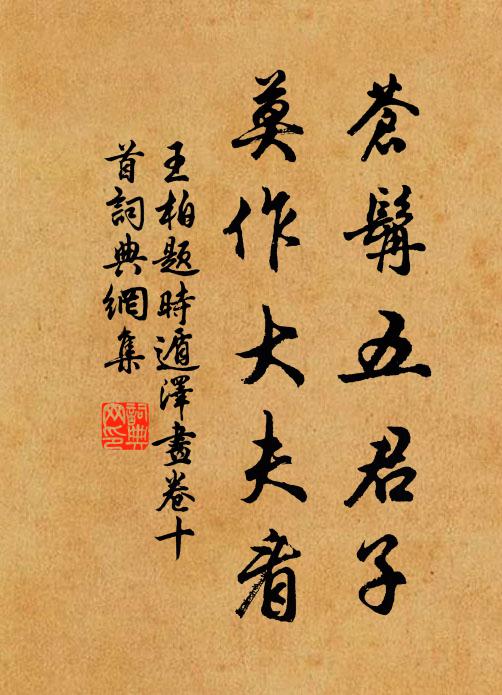 蒼髯五君子
莫作大夫看
王柏題時遁澤畫卷十
首詞典網集
詞典
網印